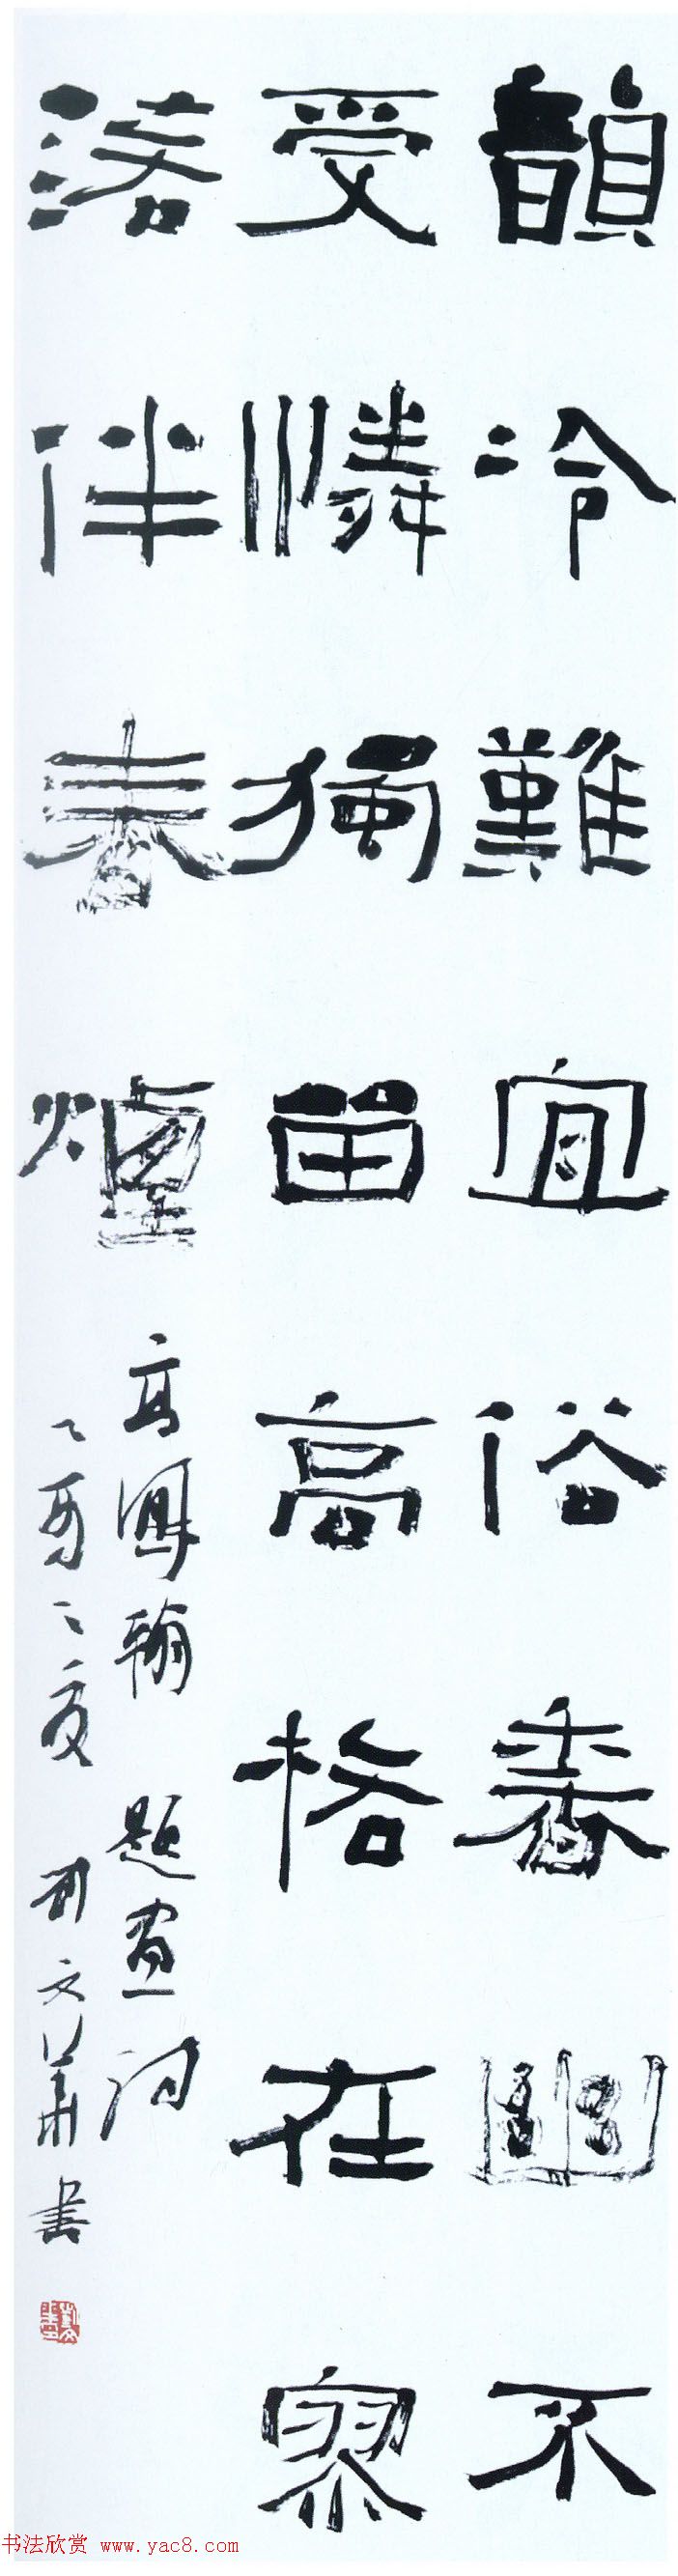 韻冷難宜俗香幽不
受憐獨留高格在寥
落伴春煙
高鳳翰題畫詩
乙酉之夏劉文華書
书法欣赏 www.yac8.com